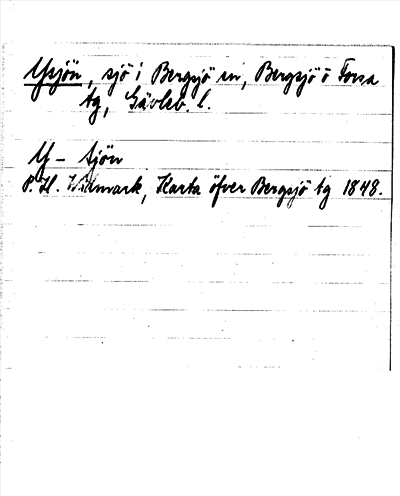 Ysjön, sjö i Bergsjö sn, Bergsjö o Forsa
tg, Gävleb. l.
Y-sjön
P. H. Widmark, Karta öfver Bergsjö tg 1848.